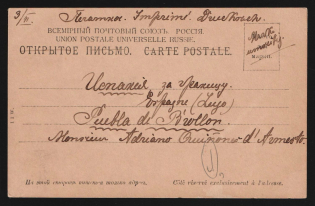 3/II. Печатное. Imprimé. Drucksach.
ВСЕМІРНЫЙ ПОЧТОВЫЙ СОЮЗЪ. РОССІЯ.
UNION POSTALE UNIVERSELLE. RUSSIE.
ОТКРЫТОЕ ПИСЬМО. CARTE POSTALE.
Испанія за границу.
Espagne (Lugo)
Puebla de Brollon.
Monsieur Adriano Quiñones d'Armesto.
На этой сторонѣ пишется только адресъ. Côté réservé exclusivement à l'adresse.